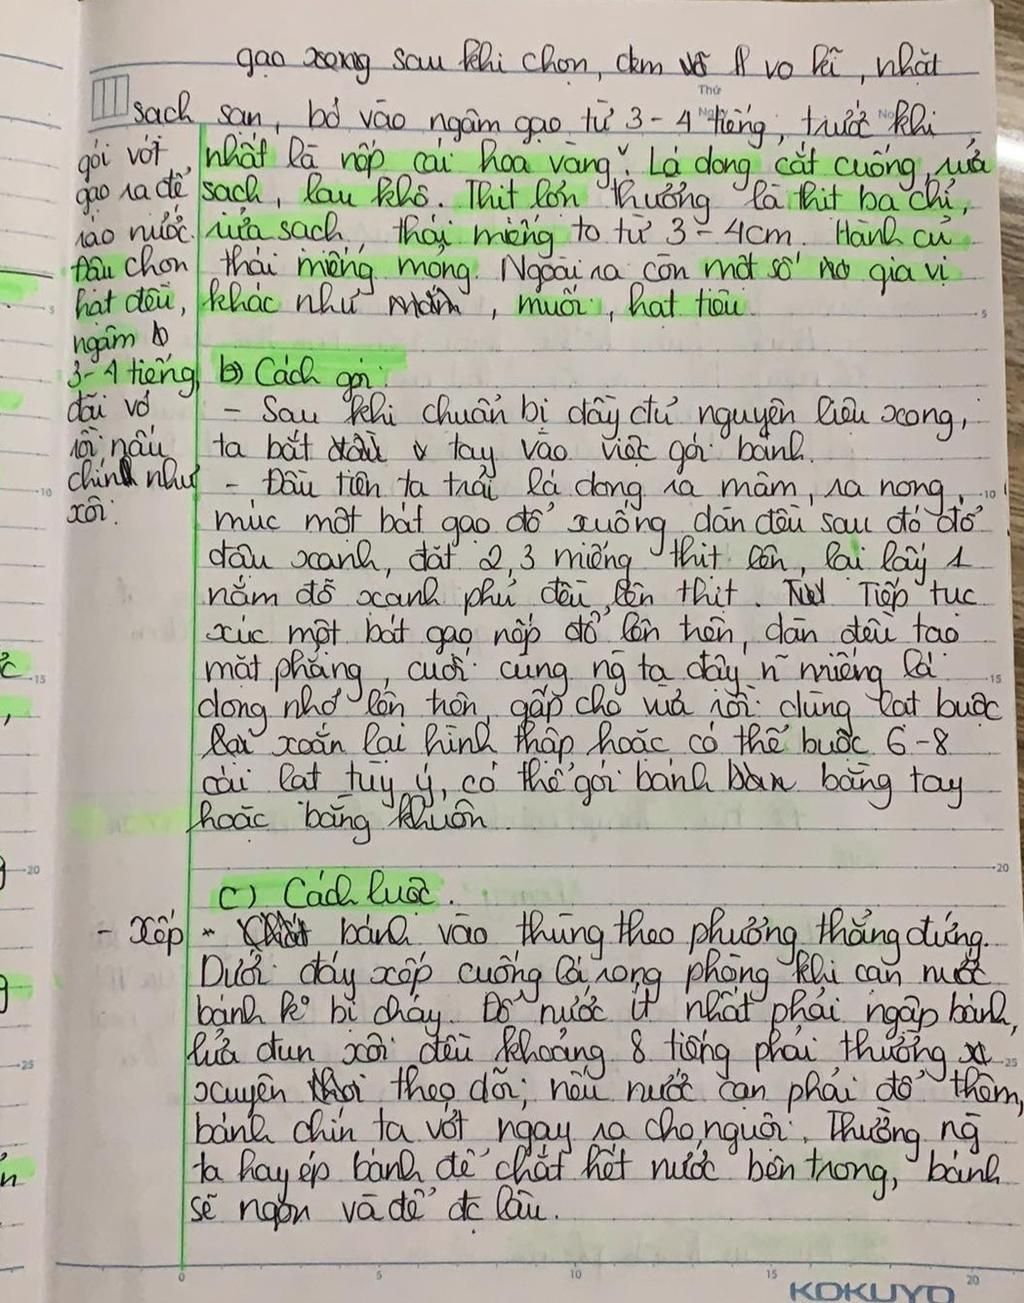 gạo xong sau khi chọn, đem vo kĩ, nhặt
sạch sạn, bỏ vào ngâm gạo từ 3-4 tiếng, trước khi
Thứ
gói vớt
gạo ra để
ráo nước.
Đậu chọn
hạt đều,
ngâm
3-4 tiếng,
đãi vỏ
rồi nấu
chính như
xôi.
nhất là nếp cái hoa vàng. Lá dong cắt cuống, rửa
sạch, lau khô. Thịt lợn thường là thịt ba chỉ,
rửa sạch, thái miếng to từ 3-4cm. Hành củ
thái miếng mỏng. Ngoài ra còn một số gia vị
khác như mắm, muối, hạt tiêu.
b) Cách gói:
- Sau khi chuẩn bị đầy đủ nguyên liệu xong,
ta bắt tay vào việc gói bánh.
- Đầu tiên ta trải lá dong ra mâm, ra nong,
múc một bát gạo đổ xuống dàn đều sau đó đổ
đậu xanh, đặt 2, 3 miếng thịt lên, lại lấy 1
nắm đỗ xanh phủ đều lên thịt. Tiếp tục
xúc một bát gạo nếp đổ lên trên, dàn đều tạo
mặt phẳng, cuối cùng ng ta đậy n~ miếng lá
dong nhỏ lên trên, gấp cho vừa rồi dùng lạt buộc
lại xoắn lại hình thập hoặc có thể buộc 6-8
cái lạt tùy ý, có thể gói bánh bằng tay
hoặc bằng khuôn.
c) Cách luộc.
- Xếp bánh vào thùng theo phương thẳng đứng.
Dưới đáy xếp cuống lá rong phòng khi cạn nước
bánh k° bị cháy. Đổ nước ít nhất phải ngập bánh,
lửa đun xôi đều khoảng 8 tiếng phải thường
xuyên theo dõi, nếu nước cạn phải đổ thêm,
bánh chín ta vớt ngay ra cho nguội. Thường ng
ta hay ép bánh để chắt hết nước bên trong, bánh
sẽ ngon và để đc lâu.
5
10
15
20
25
5
10
15
20
25
0
5
10
15
20
KOKUYO